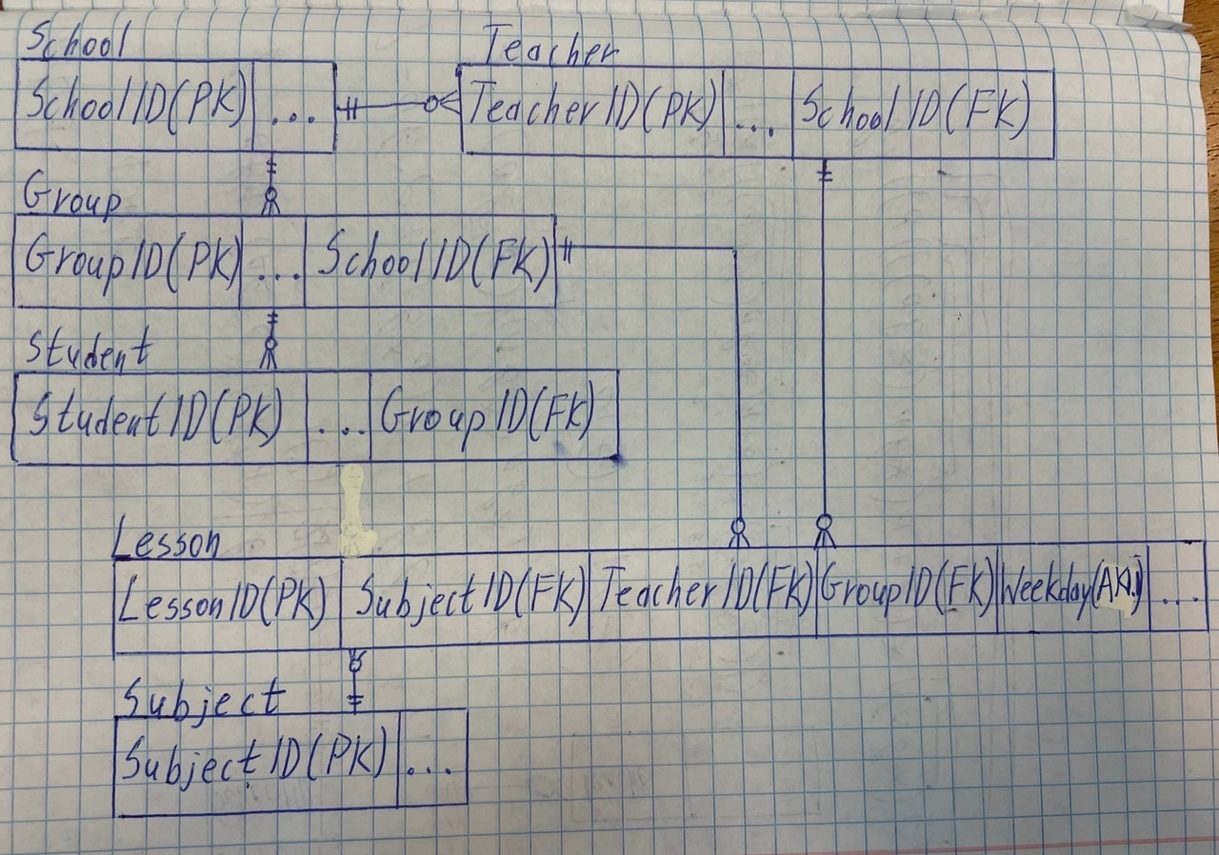 School
Teacher
SchoolID(PK) ...
TeacherID(PK) ... SchoolID(FK)
Group
GroupID(PK) ... SchoolID(FK)
Student
StudentID(PK) ... GroupID(FK)
Lesson
LessonID(PK) SubjectID(FK) TeacherID(FK) GroupID(FK) Weekday ...
Subject
SubjectID(PK) ...